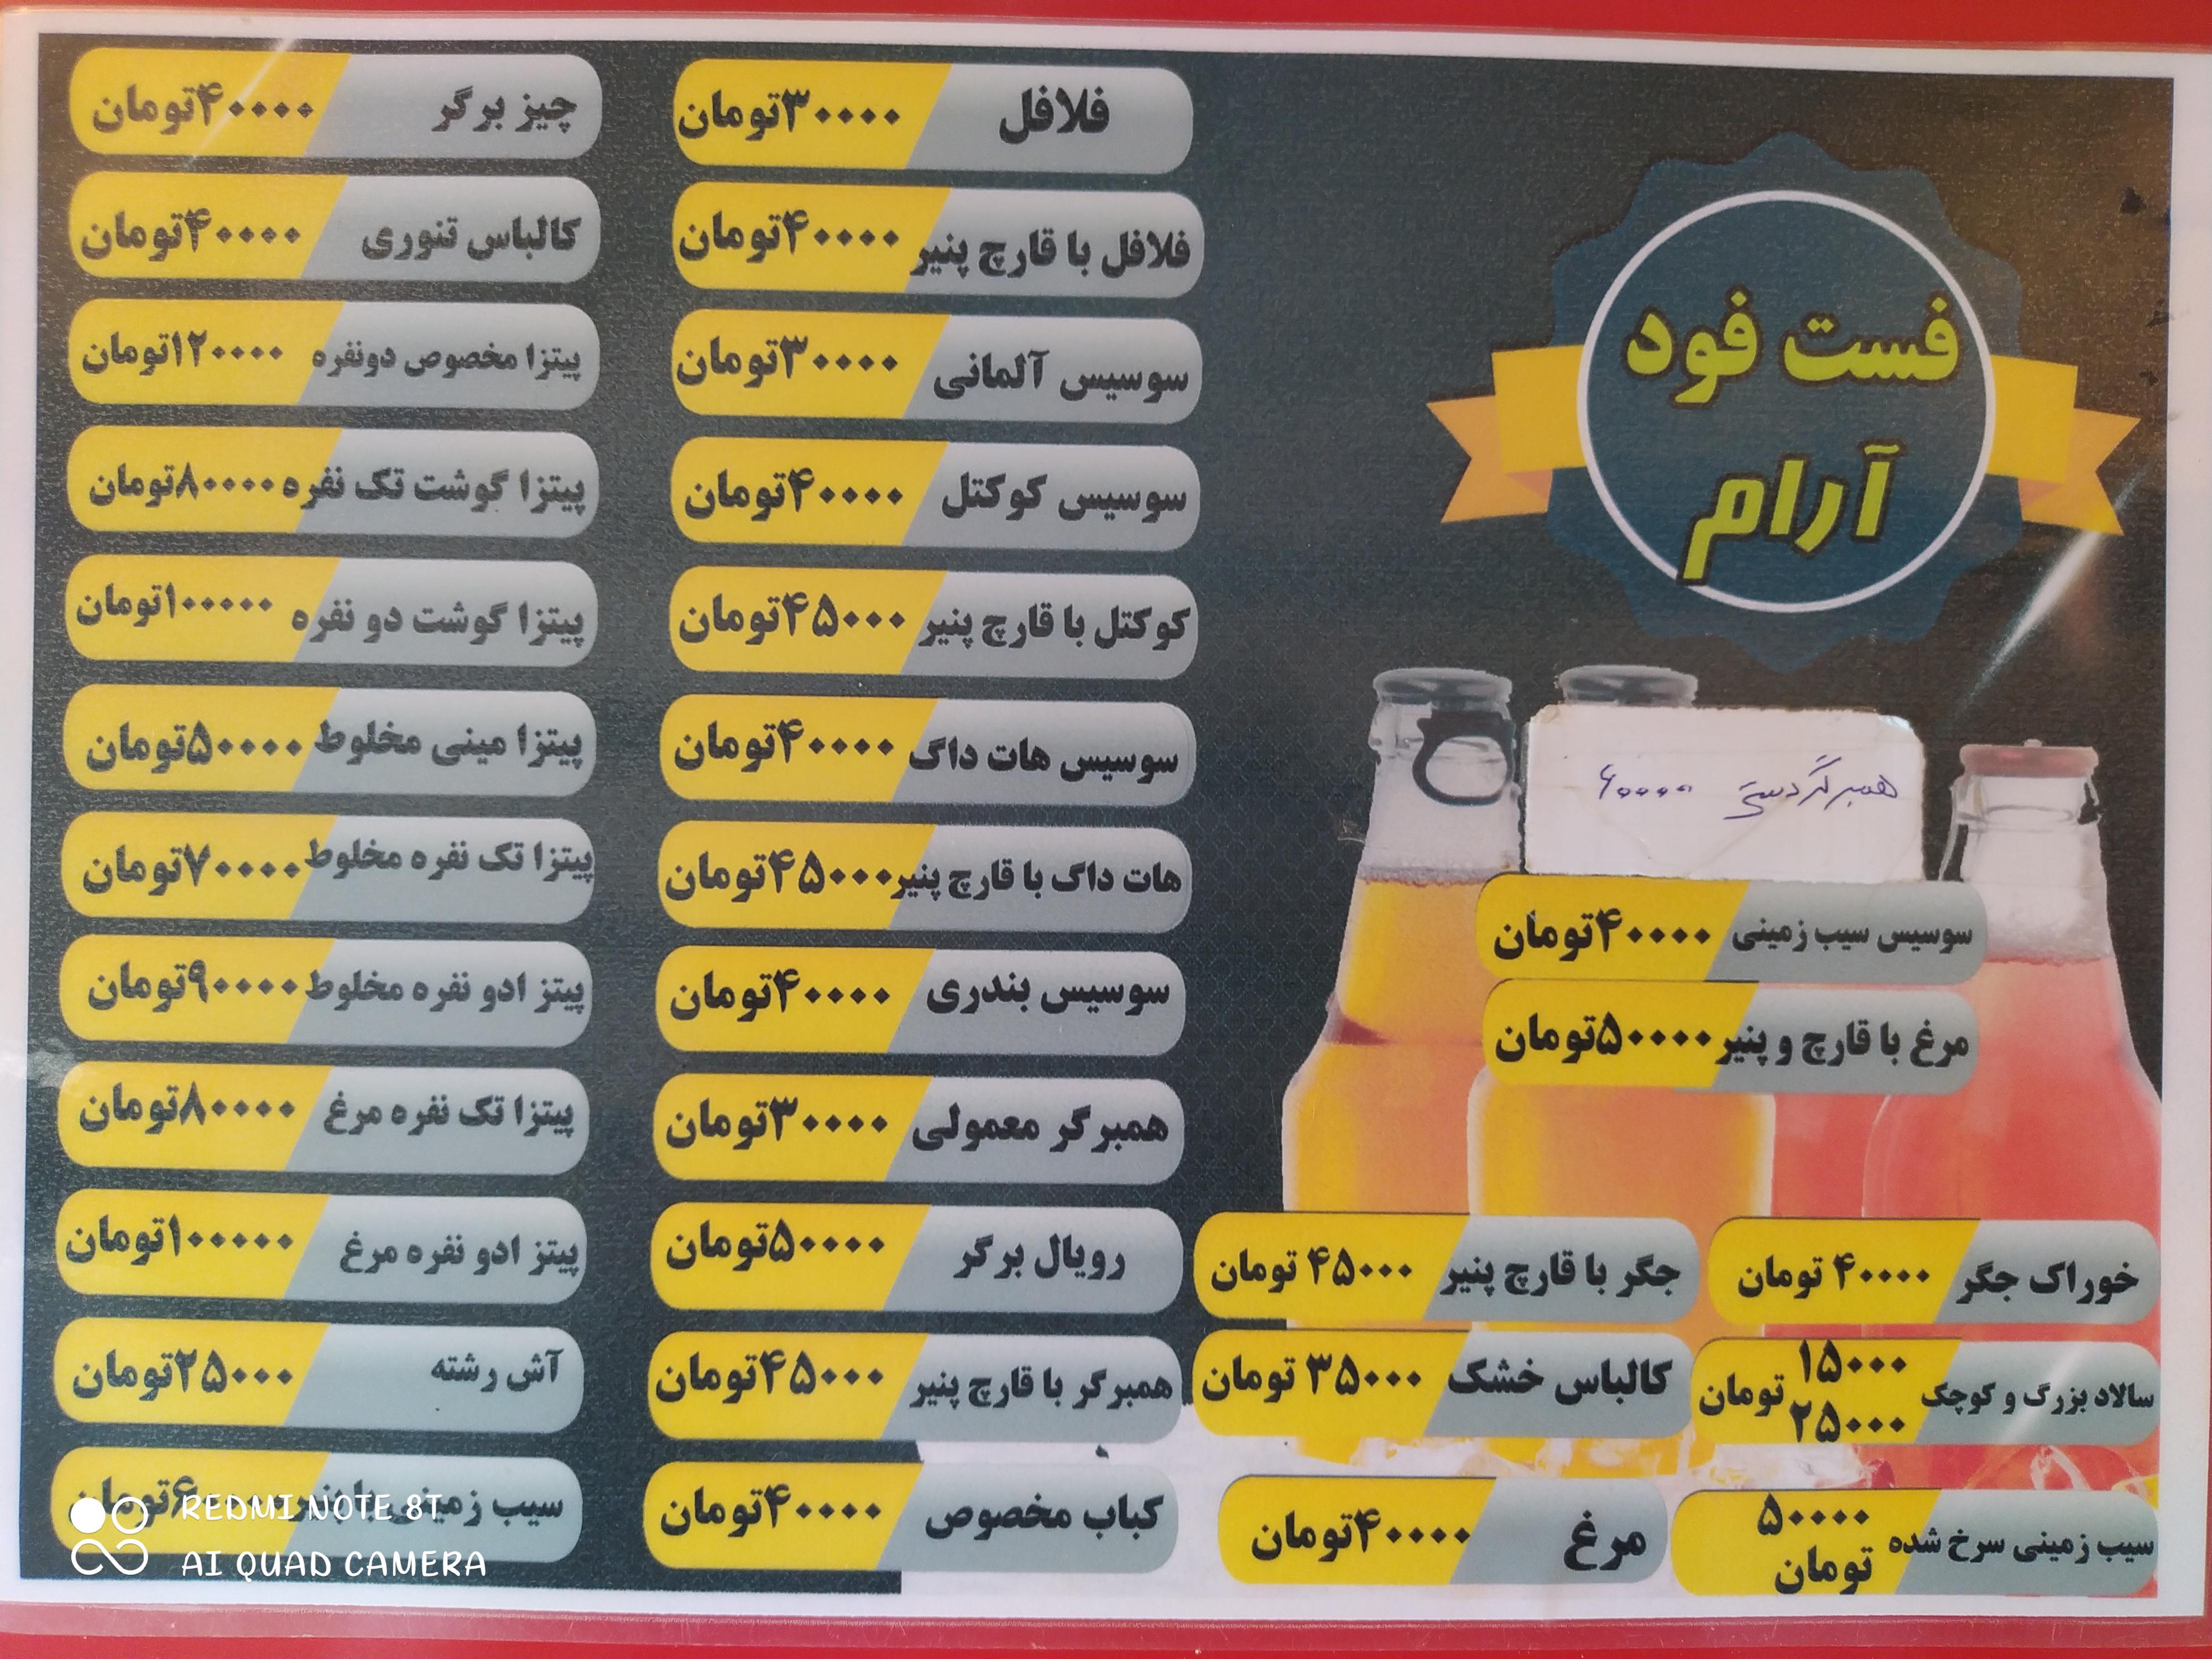 فست فود
آرام
فلافل ۳۰۰۰۰تومان
فلافل با قارچ پنیر ۴۰۰۰۰تومان
سوسیس آلمانی ۳۰۰۰۰تومان
سوسیس کوکتل ۴۰۰۰۰تومان
کوکتل با قارچ پنیر ۴۵۰۰۰تومان
سوسیس هات داگ ۴۰۰۰۰تومان
هات داگ با قارچ پنیر ۴۵۰۰۰تومان
سوسیس بندری ۴۰۰۰۰تومان
همبرگر معمولی ۳۰۰۰۰تومان
رویال برگر ۵۰۰۰۰تومان
همبرگر با قارچ پنیر ۴۵۰۰۰تومان
کباب مخصوص ۴۰۰۰۰تومان
چیز برگر ۴۰۰۰۰تومان
کالباس تنوری ۴۰۰۰۰تومان
پیتزا مخصوص دونفره ۱۲۰۰۰۰تومان
پیتزا گوشت تک نفره ۸۰۰۰۰تومان
پیتزا گوشت دو نفره ۱۰۰۰۰۰تومان
پیتزا مینی مخلوط ۵۰۰۰۰تومان
پیتزا تک نفره مخلوط ۷۰۰۰۰تومان
پیتز ادو نفره مخلوط ۹۰۰۰۰تومان
پیتزا تک نفره مرغ ۸۰۰۰۰تومان
پیتز ادو نفره مرغ ۱۰۰۰۰۰تومان
آش رشته ۲۵۰۰۰تومان
سیب زمینی با پنیر ۶۰۰۰۰تومان
همبرگر دستی ۶۰۰۰۰
سوسیس سیب زمینی ۴۰۰۰۰تومان
مرغ با قارچ و پنیر ۵۰۰۰۰تومان
خوراک جگر ۴۰۰۰۰ تومان
جگر با قارچ پنیر ۴۵۰۰۰ تومان
سالاد بزرگ و کوچک ۱۵۰۰۰ ۲۵۰۰۰ تومان
کالباس خشک ۳۵۰۰۰ تومان
سیب زمینی سرخ شده ۵۰۰۰۰
تومان
مرغ ۴۰۰۰۰تومان
REDMI NOTE 8T
AI QUAD CAMERA